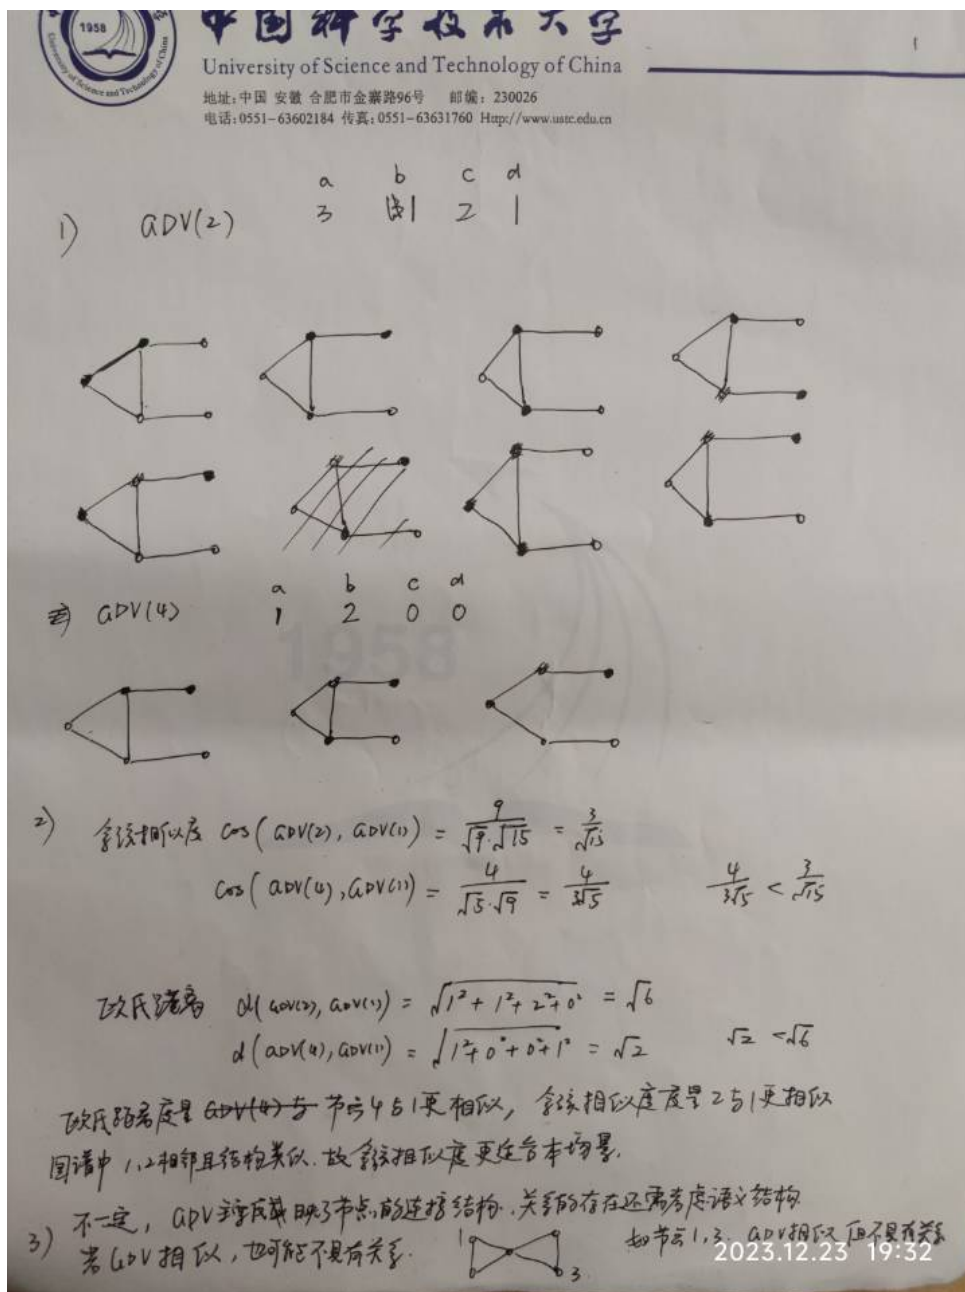 1958
中国科学技术大学
University of Science and Technology of China
地址:中国 安徽 合肥市金寨路96号 邮编:230026
电话:0551-63602184 传真:0551-63631760 Http://www.ustc.edu.cn
a b c d
1) GDV(2) 3 1 2 1
a b c d
GDV(4) 1 2 0 0
1958
2) 余弦相似度 cos(GDV(2), GDV(1)) = 9/(√9·√15) = 3/√15
cos(GDV(4), GDV(1)) = 4/(√5·√9) = 4/(3√5) 4/(3√5) < 3/√15
欧氏距离 d(GDV(2), GDV(1)) = √(1²+1²+2²+0²) = √6
d(GDV(4), GDV(1)) = √(1²+0²+0²+1²) = √2 √2 < √6
欧氏距离度量 GDV(4)与 节点4与1更相似, 余弦相似度度量2与1更相似
图谱中1,2相邻且结构类似.故余弦相似度更适合本场景.
3) 不一定, GDV 反映了节点的连接结构.关系的存在还需考虑语义结构
若GDV相似,也可能不具有关系. 1 3 如节点1,3. GDV相似但不具有关系
2023.12.23 19:32